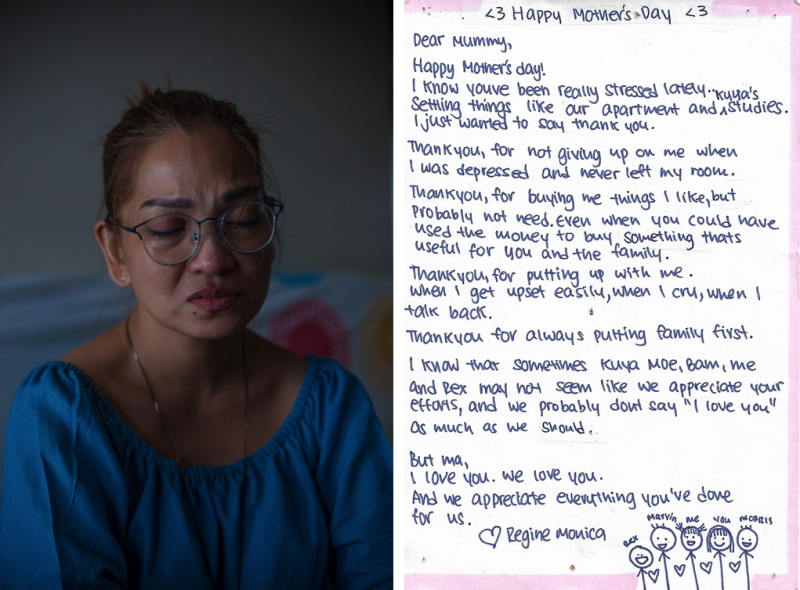 <3 Happy Mother's Day <3
Dear Mummy,
Happy Mother's day!
I know youve been really stressed lately..
Settling things like our apartment and kuya's studies.
I just wanted to say thank you.
Thankyou, for not giving up on me when
I was depressed and never left my room.
Thankyou, for buying me things I like, but
Probably not need. Even when you could have
used the money to buy something thats
useful for you and the family.
Thankyou, for putting up with me.
When I get upset easily, when I cry, when I
talk back.
Thankyou for always putting family first.
I know that sometimes Kuya Moe, Bam, me
and Rex may not seem like we appreciate your
efforts, and we probably dont say "I love you"
as much as we should.
But ma,
I love you. we love you.
And we appreciate everything you've done
for us.
♡ Regine Monica
Rex Marvin me you MORRIS